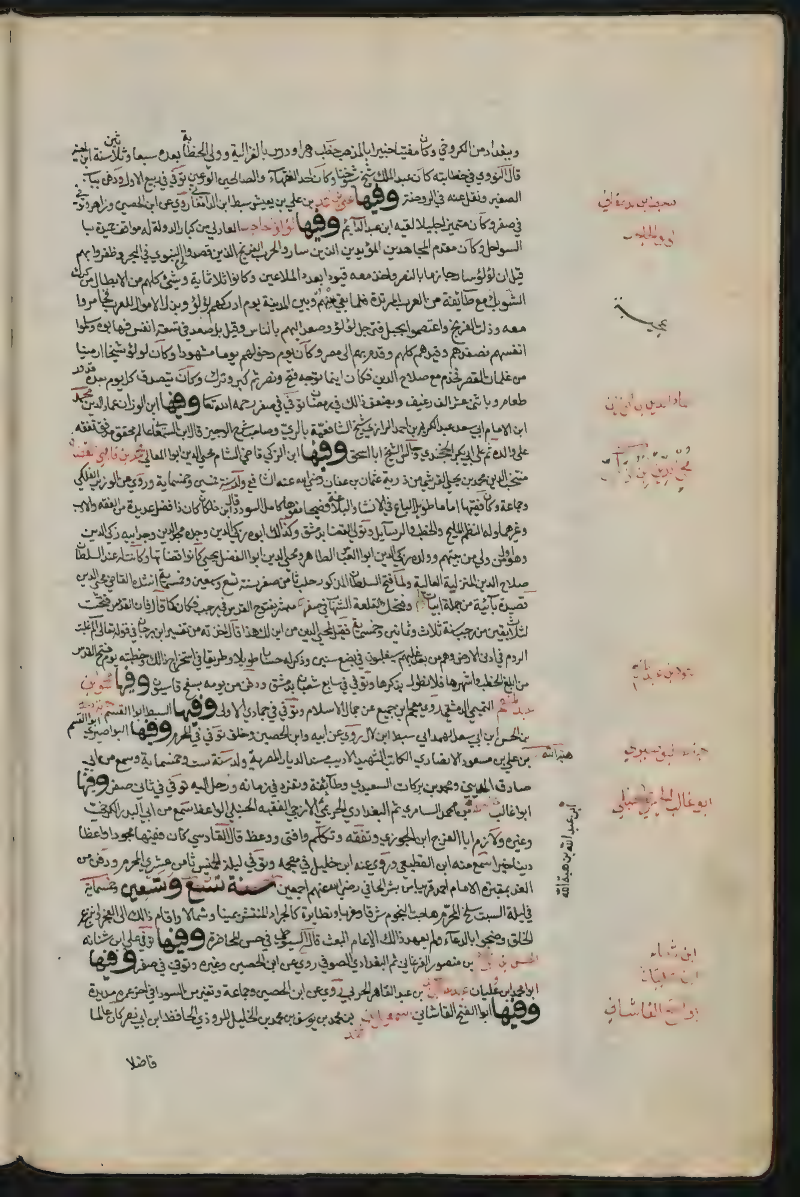 وببغداد من الكروخي وكان مفتيا خبيرا بالمذهب خطب دهرا ودرس بالغزالية وولي الخطابة بعده سبعا وثلاثين سنة
قال النووي في طبقاته كان عبد الملك شيخ شيوخنا وكان احد الفقهاء والصالحين الورعين توفي في ربيع الاول ودفن بباب
الصغير ونقل عنه في الروضة وفيها علي بن بن علي بن يعيش سبط ابن الدامغاني روي عن ابن الحصين وزاهر وتوفي
في صفر وكان متميزا جليلا لقيه ابن عبد الدايم وفيها لؤلؤ الحاجب العادلي من كبار الدولة له مواقف حميدة بـ
السواحل وكان مقدم المجاهدين المؤيدين الذين ساروا لحرب الفرنج الذين قصدوا النبوي في البحر وظفروا بهم
قيل ان لؤلؤ سار جازما بالنصر واخذ معه قيودا بعدد الملاعين وكانوا ثلثماية وشئ كلهم من الابطال من كرك
الشوبك مع طائفة من العرب المرتدة فلما بقي بينهم وبين المدينة يوم ادركهم لؤلؤ وبذل الاموال للعرب فخامروا
معه وذلت الفرنج واعتصموا بجبل فترجل لؤلؤ وصعد اليهم بالناس وقيل بل صعد في تسعة انفس فهابوه وسلموا
انفسهم فصفدهم وقيدهم كلهم وقدم بهم الى مصر وكان يوم دخولهم يوما مشهودا وكان لؤلؤ شيخا ارمنيا
من غلمان القصر فخدم مع صلاح الدين فكان اينما توجه فتح ونصر ثم كبر وترك وكان يتصدق كل يوم بعدة قدور
طعام وباثني عشر الف رغيف ويضعف ذلك في رمضان توفي في صفر رحمه الله تعالى وفيها ابن الوزان عماد الدين محمد
ابن الامام ابي سعد عبد الكريم بن احمد الرازي شيخ الشافعية بالري وصاحب شرح الوجيز قال ابن السمعاني عالم محقق مدقق تفقه
على والده ثم على ابي بكر الخجندي وجالس الشيخ ابا اسحق وفيها ابن الزكي قاضي الشام محي الدين ابو المعالي محمد بن قاضي القضاة
منتجب الدين محمد بن يحيى القرشي من ذرية عثمان بن عفان رضي الله عنه الشافعي ولد سنة خمسين وخمسماية وروي عن الوزير الفلكي
وجماعة وكان فقيها اماما طويل الباع في الانشاء والبلاغة فصيحا مفوها كامل السودد قال ابن خلكان كان ذا فضل عديدة من الفقه والادب
وغيرهما وله النظم المليح والخطب والرسائل وتولي القضا بدمشق وكذلك ابوه زكي الدين وجده مجد الدين وجد ابيه زكي الدين
وهو اول من ولي من بيتهم وولده زكي الدين ابو العباس الطاهر ومحي الدين ابو الفضل يحيى كانوا قضاتها وكانت له عند السلطان
صلاح الدين المنزلة العالية ولما فتح السلطان المذكور حلب ثامن صفر سنة تسع وسبعين وخمسماية انشده القاضي محي الدين
قصيدة بائية من جملة ابياتها وفتحك القلعة الشهباء في صفر مبشر بفتوح القدس في رجب فكان كما قال فان القدس فتحت
لثلاث بقين من رجب سنة ثلاث وثمانين وخمسماية فقيل لمحي الدين من اين لك هذا قال اخذته من تفسير ابن برجان في قوله تعالى الم غلبت
الروم في ادنى الارض وهم من بعد غلبهم سيغلبون في بضع سنين وذكر له حسابا طويلا وطريقا في استخراج ذلك وخطبته يوم فتح القدس
من ابلغ الخطب واشهرها فلا نطول بذكرها وتوفي في سابع شعبان بدمشق ودفن من يومه بسفح قاسيون وفيها
التميمي الدمشقي روي عن جمال الاسلام وتوفي في جمادي الاولى وفيها السبط ابو القسم
بن الحسن ابن ابي سعد الهمداني سبط ابن لال روي عن ابيه وابن الحصين وخلق توفي في المحرم وفيها البوصيري ابو القسم
بن علي بن مسعود الانصاري الكاتب الاديب مسند الديار المصرية ولد سنة ست وخمسماية وسمع من ابي
صادق المديني ومحمد بن بركات السعيدي وطائفة وتفرد في زمانه ورحل اليه توفي في ثاني صفر وفيها
ابو غالب بن محمد السامري ثم البغدادي الحريمي الازجي الفقيه الحنبلي الواعظ سمع من ابي البدر الكرخي
وغيره ولازم ابا الفرج ابن الجوزي وتفقه وتكلم وافتى ووعظ قال القادسي كان فقيها مجودا واعظا
دينا خيرا سمع منه ابن القطيعي وروي عنه ابن خليل في معجمه وتوفي ليلة الخميس ثامن عشري المحرم ودفن من
الغد بمقبرة الامام احمد قريبا من بشر الحافي رضي الله عنهم اجمعين سنة تسع وتسعين وخمسماية
في ليلة السبت سلخ المحرم هاجت النجوم شرقا وغربا وتطايرت كالجراد المنتشر يمينا وشمالا واقام ذلك الى الفجر وانزعج
الخلق وضجوا بالدعاء ولم يعهد ذلك الا عام البعث قاله السيوطي في حسن المحاضرة وفيها توفي علي ابن شنانه
الحسن بن بن منصور الفرغاني ثم البغدادي الصوفي روي عن ابن الحصين وغيره وتوفي في صفر وفيها
ابو محمد ابن عليان عبد الله بن بن عبد القاهر الحربي روي عن ابن الحصين وجماعة وتغير من السودا في اخر عمره مديدة
وفيها ابو الفتح القاشاني اسمعيل بن محمد بن محمد بن يوسف بن محمد بن الخليل المروذي الحافظ ابن ابي نصر كان عالما
فاضلا
هبة الله
ابن عبد الله بن هبة الله
ابو غالب الحنبلي
ابن عليان
ابو الفتح القاشاني